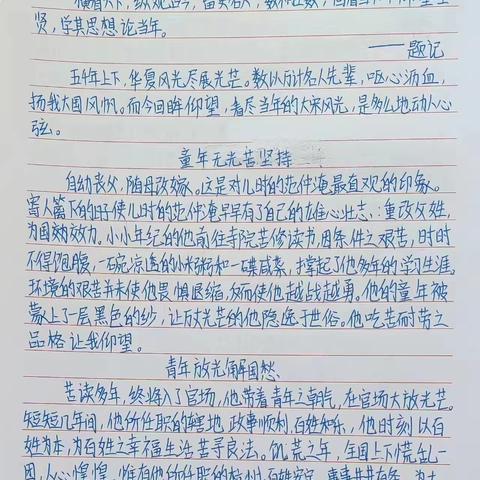 横看天下，纵观
贤，学其思想论当年。
——题记
五千年上下，华夏风光尽展光芒。数以万计名人先辈，呕心沥血，
扬我大国风帆。而今回眸仰望，看尽当年的大宋风光，是多么地动人心
弦。
童年无光苦坚持
自幼丧父，随母改嫁。这是对儿时的范仲淹最直观的印象。
寄人篱下的日子使儿时的范仲淹早早有了自己的雄心壮志：重改父姓，
为国效力。小小年纪的他前往寺院苦修读书，因条件之艰苦，时时
不得饱腹，一碗凉透的小米粥和一碟咸菜，撑起了他多年的学习生涯。
环境的艰苦并未使他畏惧退缩，反而使他越战越勇。他的童年被
蒙上了一层黑色的纱，让放光芒的他隐逸于世俗。他吃苦而耐劳之
品格让我仰望。
青年放光解国愁
苦读多年，终将入了官场，他带着青年之朝气，在官场大放光芒。
短短几年间，他所任职的辖地，政事顺利，百姓和乐，他时刻以百
姓为本，为百姓之幸福生活苦寻良法。饥荒之年，全国上下慌乱一
团，人心惶惶，唯有他所任职的杭州，百姓安定，事事井井有条，为